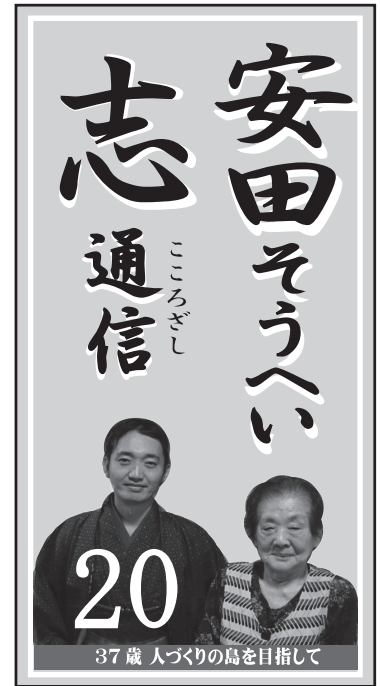 安田そうへい
志通信
こころざし
20
37歳 人づくりの島を目指して